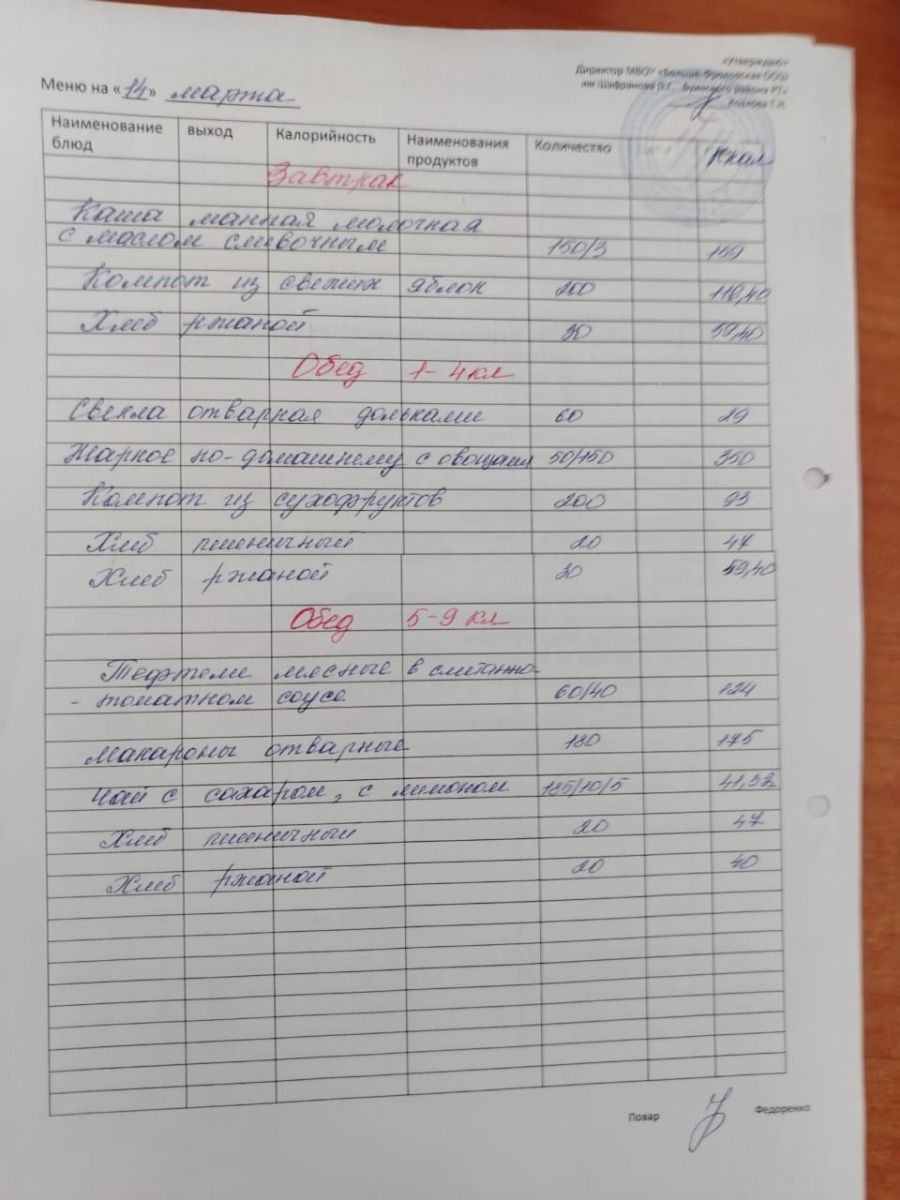 «Утверждаю»
Директор МБОУ «Больше-Фроловская ООШ
им Шафранова П.Г. Буинского района РТ»
Козлова Г.И.
Меню на «14» марта
Наименование блюд выход Калорийность Наименования продуктов Количество Ккал
Завтрак
Каша манная молочная
с маслом сливочным 150/3 159
Компот из свежих яблок 200 116,40
Хлеб ржаной 30 59,40
Обед 1-4 кл
Свекла отварная дольками 60 29
Жаркое по-домашнему с овощами 50/150 350
Компот из сухофруктов 200 93
Хлеб пшеничный 20 47
Хлеб ржаной 30 59,40
Обед 5-9 кл
Тефтели мясные в сметанно
- томатном соусе 60/40 124
Макароны отварные 180 175
Чай с сахаром, с лимоном 185/10/5 41,52
Хлеб пшеничный 20 47
Хлеб ржаной 20 40
Повар Федоренко